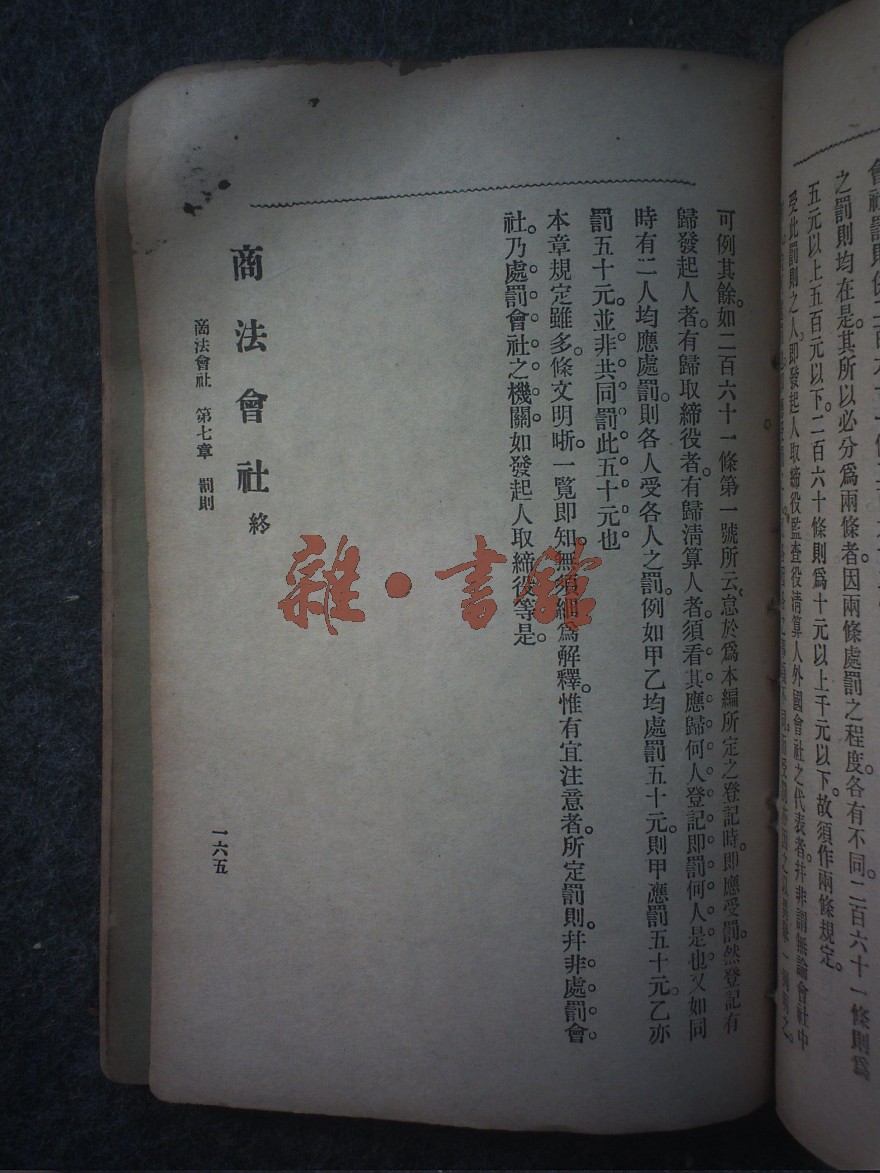 之罰則均在是。其所以必分爲兩條者。因兩條處罰之程度各有不同。二百六十一條則爲
五元以上五百元以下。二百六十條則爲十元以上千元以下。故須作兩條規定。
受此罰則之人。即發起人取締役監查役清算人外國會社之代表者。幷非謂無論會社中
可例其餘。如二百六十一條第一號所云。怠於爲本編所定之登記時。即應受罰。然登記有
歸發起人者。有歸取締役者。有歸淸算人者。須看其應歸何人登記。即罰何人是也。又如同
時有二人均應處罰。則各人受各人之罰。例如甲乙均處罰五十元。則甲應罰五十元。乙亦
罰五十元。並非共同罰此五十元也
本章規定雖多。條文明晰。一覧即知。無須細爲解釋。惟有宜注意者。所定罰則。幷非處罰會
社。乃處罰會社之機關。如發起人取締役等是。
商法會社 終
商法會社 第七章 罰則
一六五
雜·書館